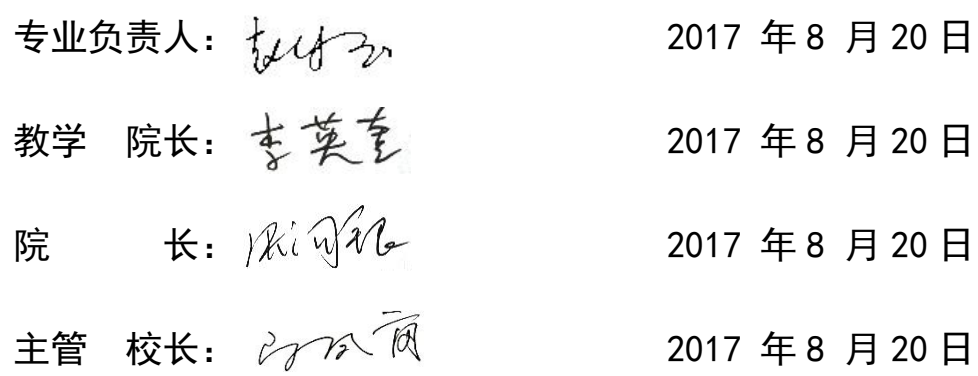 专业负责人: 2017 年 8 月 20 日
教学 院长: 李英奎 2017 年 8 月 20 日
院 长: 2017 年 8 月 20 日
主管 校长: 2017 年 8 月 20 日